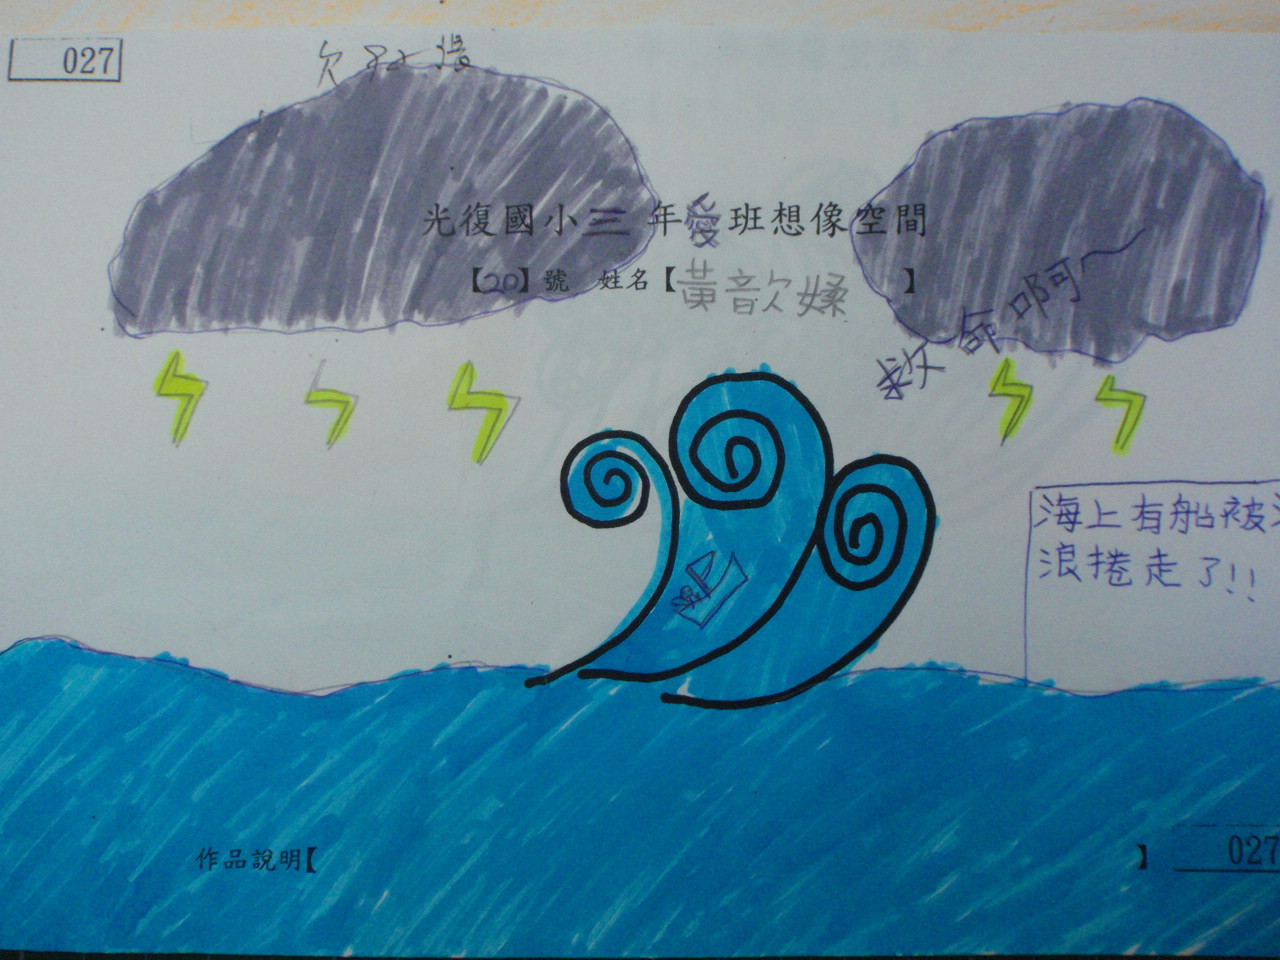 027
光復國小三年愛班想像空間
【20】號 姓名【黃歆媃】
救命啊～
海上有船被
浪捲走了!!
作品說明【 】
027